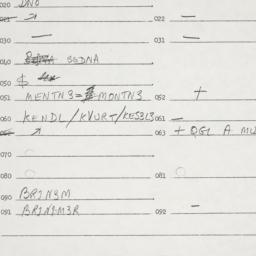 020 DNO
021 022 —
030 — 031 —
040 SEDNA
050 $
051 MENTN3= MONTN3 052 +
060 KENDL/KVURT/KES313 061 —
063 + QGL A MU
070
080 081
090 BRINGM
091 BRINGM3R 092 —